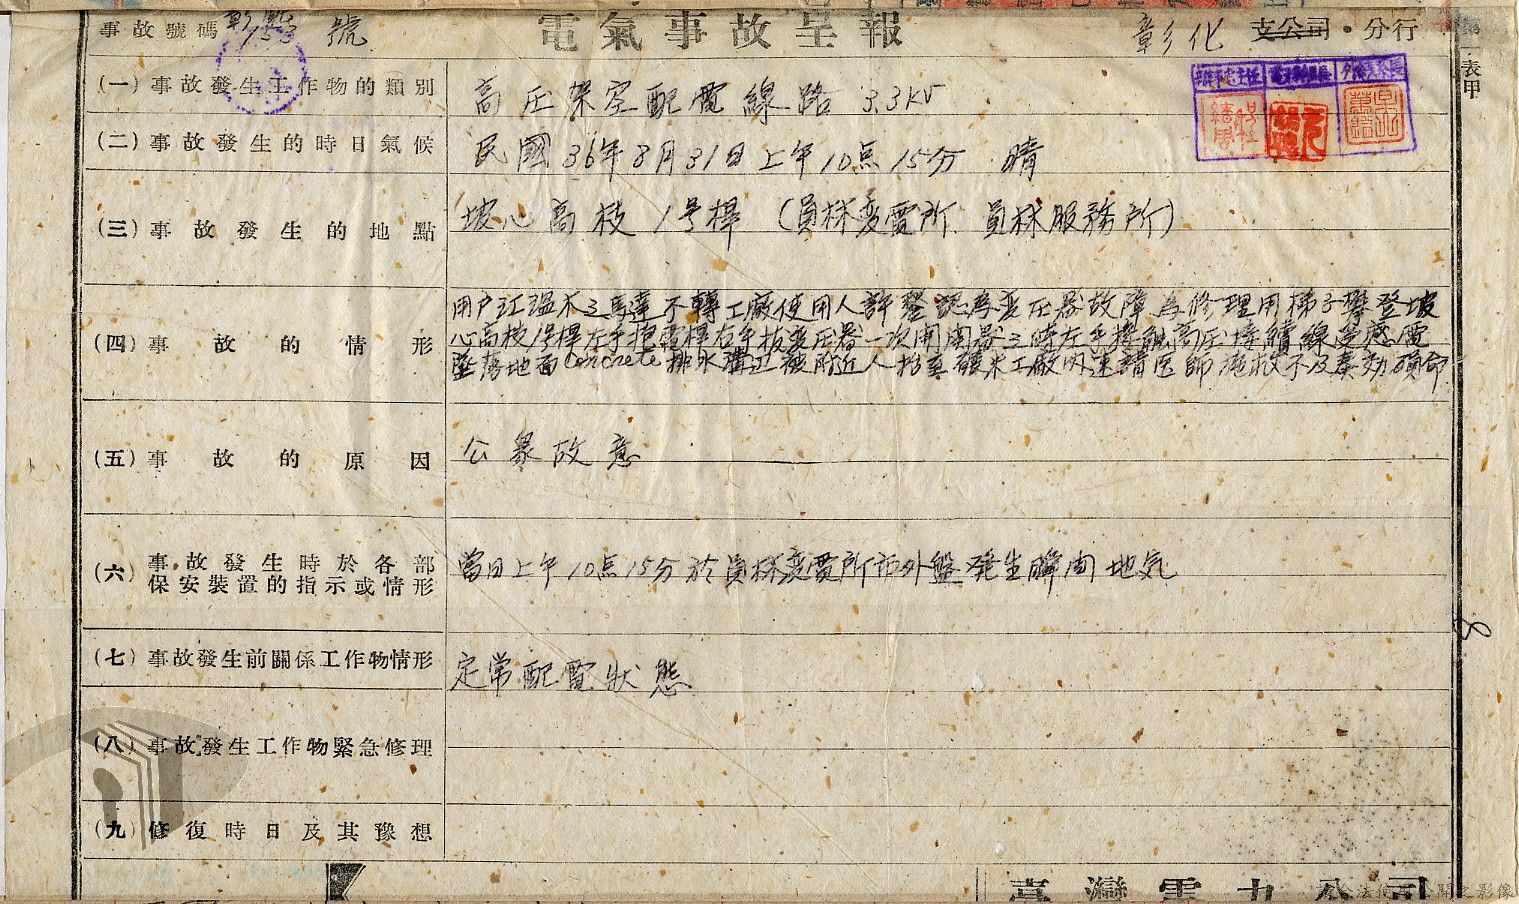 事故號碼 153 號 電氣事故呈報 彰化 支公司・分行
第一表甲
(一)事故發生工作物的類別 高圧架空配電線路 3.3KV
(二)事故發生的時日氣候 民國36年8月31日上午10点15分 晴
(三)事故發生的地點 坡心高枝1号桿(員林変電所、員林服務所)
用户江温木之馬達不轉工廠使用人許 認為変圧器故障為修理用梯子攀登坡
(四)事故的情形 心高枝1号桿左手抱電桿右手拔変圧器一次開閉器之時左手接触高圧接續線受感電
墜落地面Concrete排水溝辺被附近人抬至碾米工廠内速請医師施救不及奏効殞命
(五)事故的原因 公衆故意
(六)事故發生時於各部保安裝置的指示或情形 當日上午10点15分於員林変電所市外盤発生瞬間地気
(七)事故發生前關係工作物情形 定常配電狀態
(八)事故發生工作物緊急修理
(九)修復時日及其豫想
8
臺灣電力公司